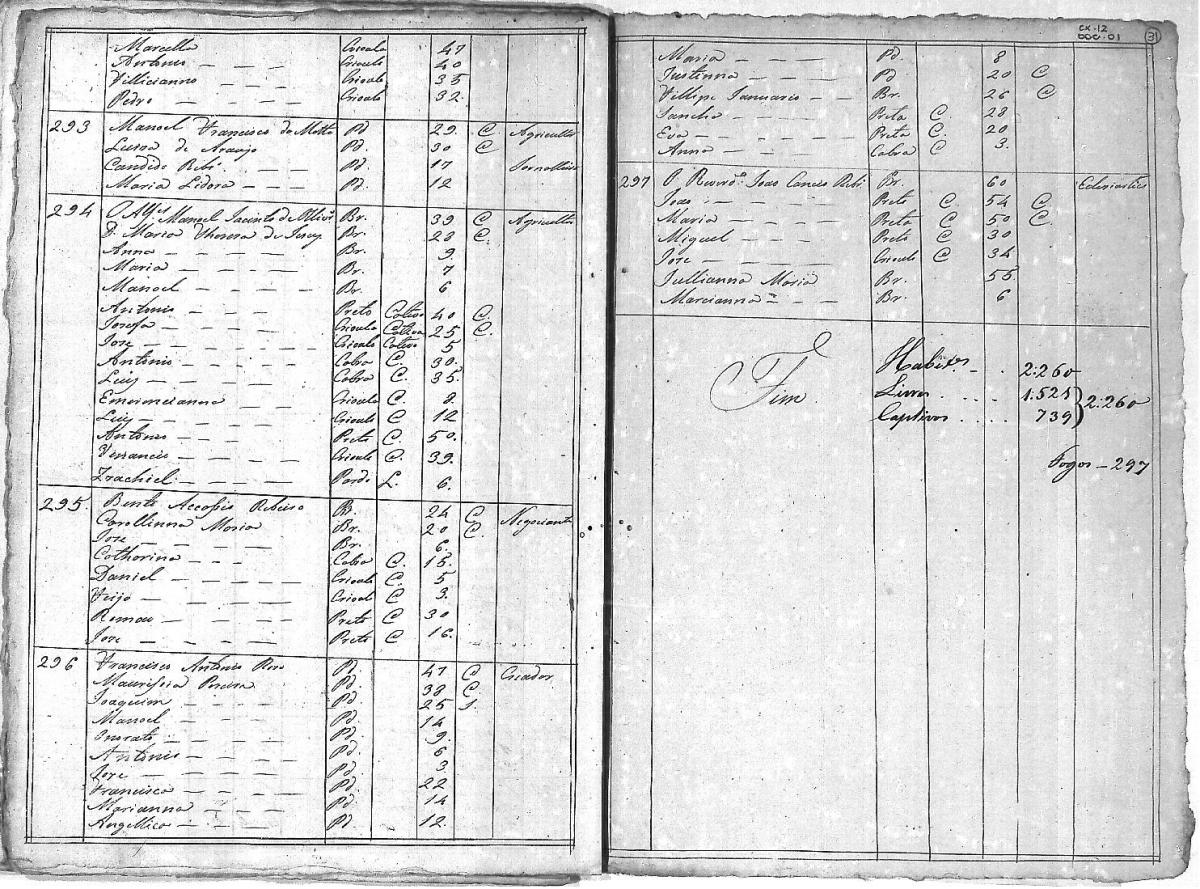 Marcella Crioula 47
Antonio Crioulo 40
Villicianno Crioulo 35
Pedro Crioulo 32
293 Manoel Francisco da Motta Pd. 29 C Agricultor
Luiza de Araujo Pd. 30 C
Candido Ribr. Pd. 17 Jornalleiro
Maria Lidora Pd. 12
294 O Alfes. Manoel Jacinto de Olivra. Br. 39 C Agricultor
D. Maria Thereza de Br. 28 C.
Anna Br. 9.
Maria Br. 7
Manoel Br. 6
Antonio Preto Cativo 40 C
Josefa Crioula Cativa 25 C.
Jose Crioulo Cativo 5
Antonio Cabra C. 30.
Luiz Cabra C. 35.
Emerencianna Crioula C. 2.
Luiz Crioulo C 12
Antonio Preto C. 50.
Venancio Crioulo C. 39.
Izachiel Pardo L. 6.
295. Bento Ribeiro B. 24 C Negociante
Carollinna Maria Br. 20 C.
Jose Br. 6.
Catharina Cabra C. 15.
Daniel Crioulo C. 5
Crioulo C 3.
Romau Preto C 30
Jose Preto C 16.
296 Francisco Antonio Pd. 47 C Criador
Mauricia Pereira Pd. 38 C.
Joaquim Pd. 25 S.
Manoel Pd. 14
Pd. 9.
Antonio Pd. 6
Jose Pd. 3
Francisca Pd. 22
Marianna Pd. 14
Angellica Pd. 12.
CX-12
DOC-01
31
Maria Pd. 8
Justinna Pd 20 C
Villipe Januario Br. 26 C
Sancha Preta C. 28
Eva Preta C. 20
Anna Cabra C 3.
297 O Revro. Joao Cancio Ribr. Br. 60 Eclesiastico
Joao Preto C. 54 C
Maria Preta C 50 C.
Miguel Preto C 30
Jose Crioulo C 34
Jullianna Maria Br. 55
Marcianna Br. 6
Fim
Habites. 2:260
Livres 1.525
Captivos 739 } 2:260
Fogos - 297